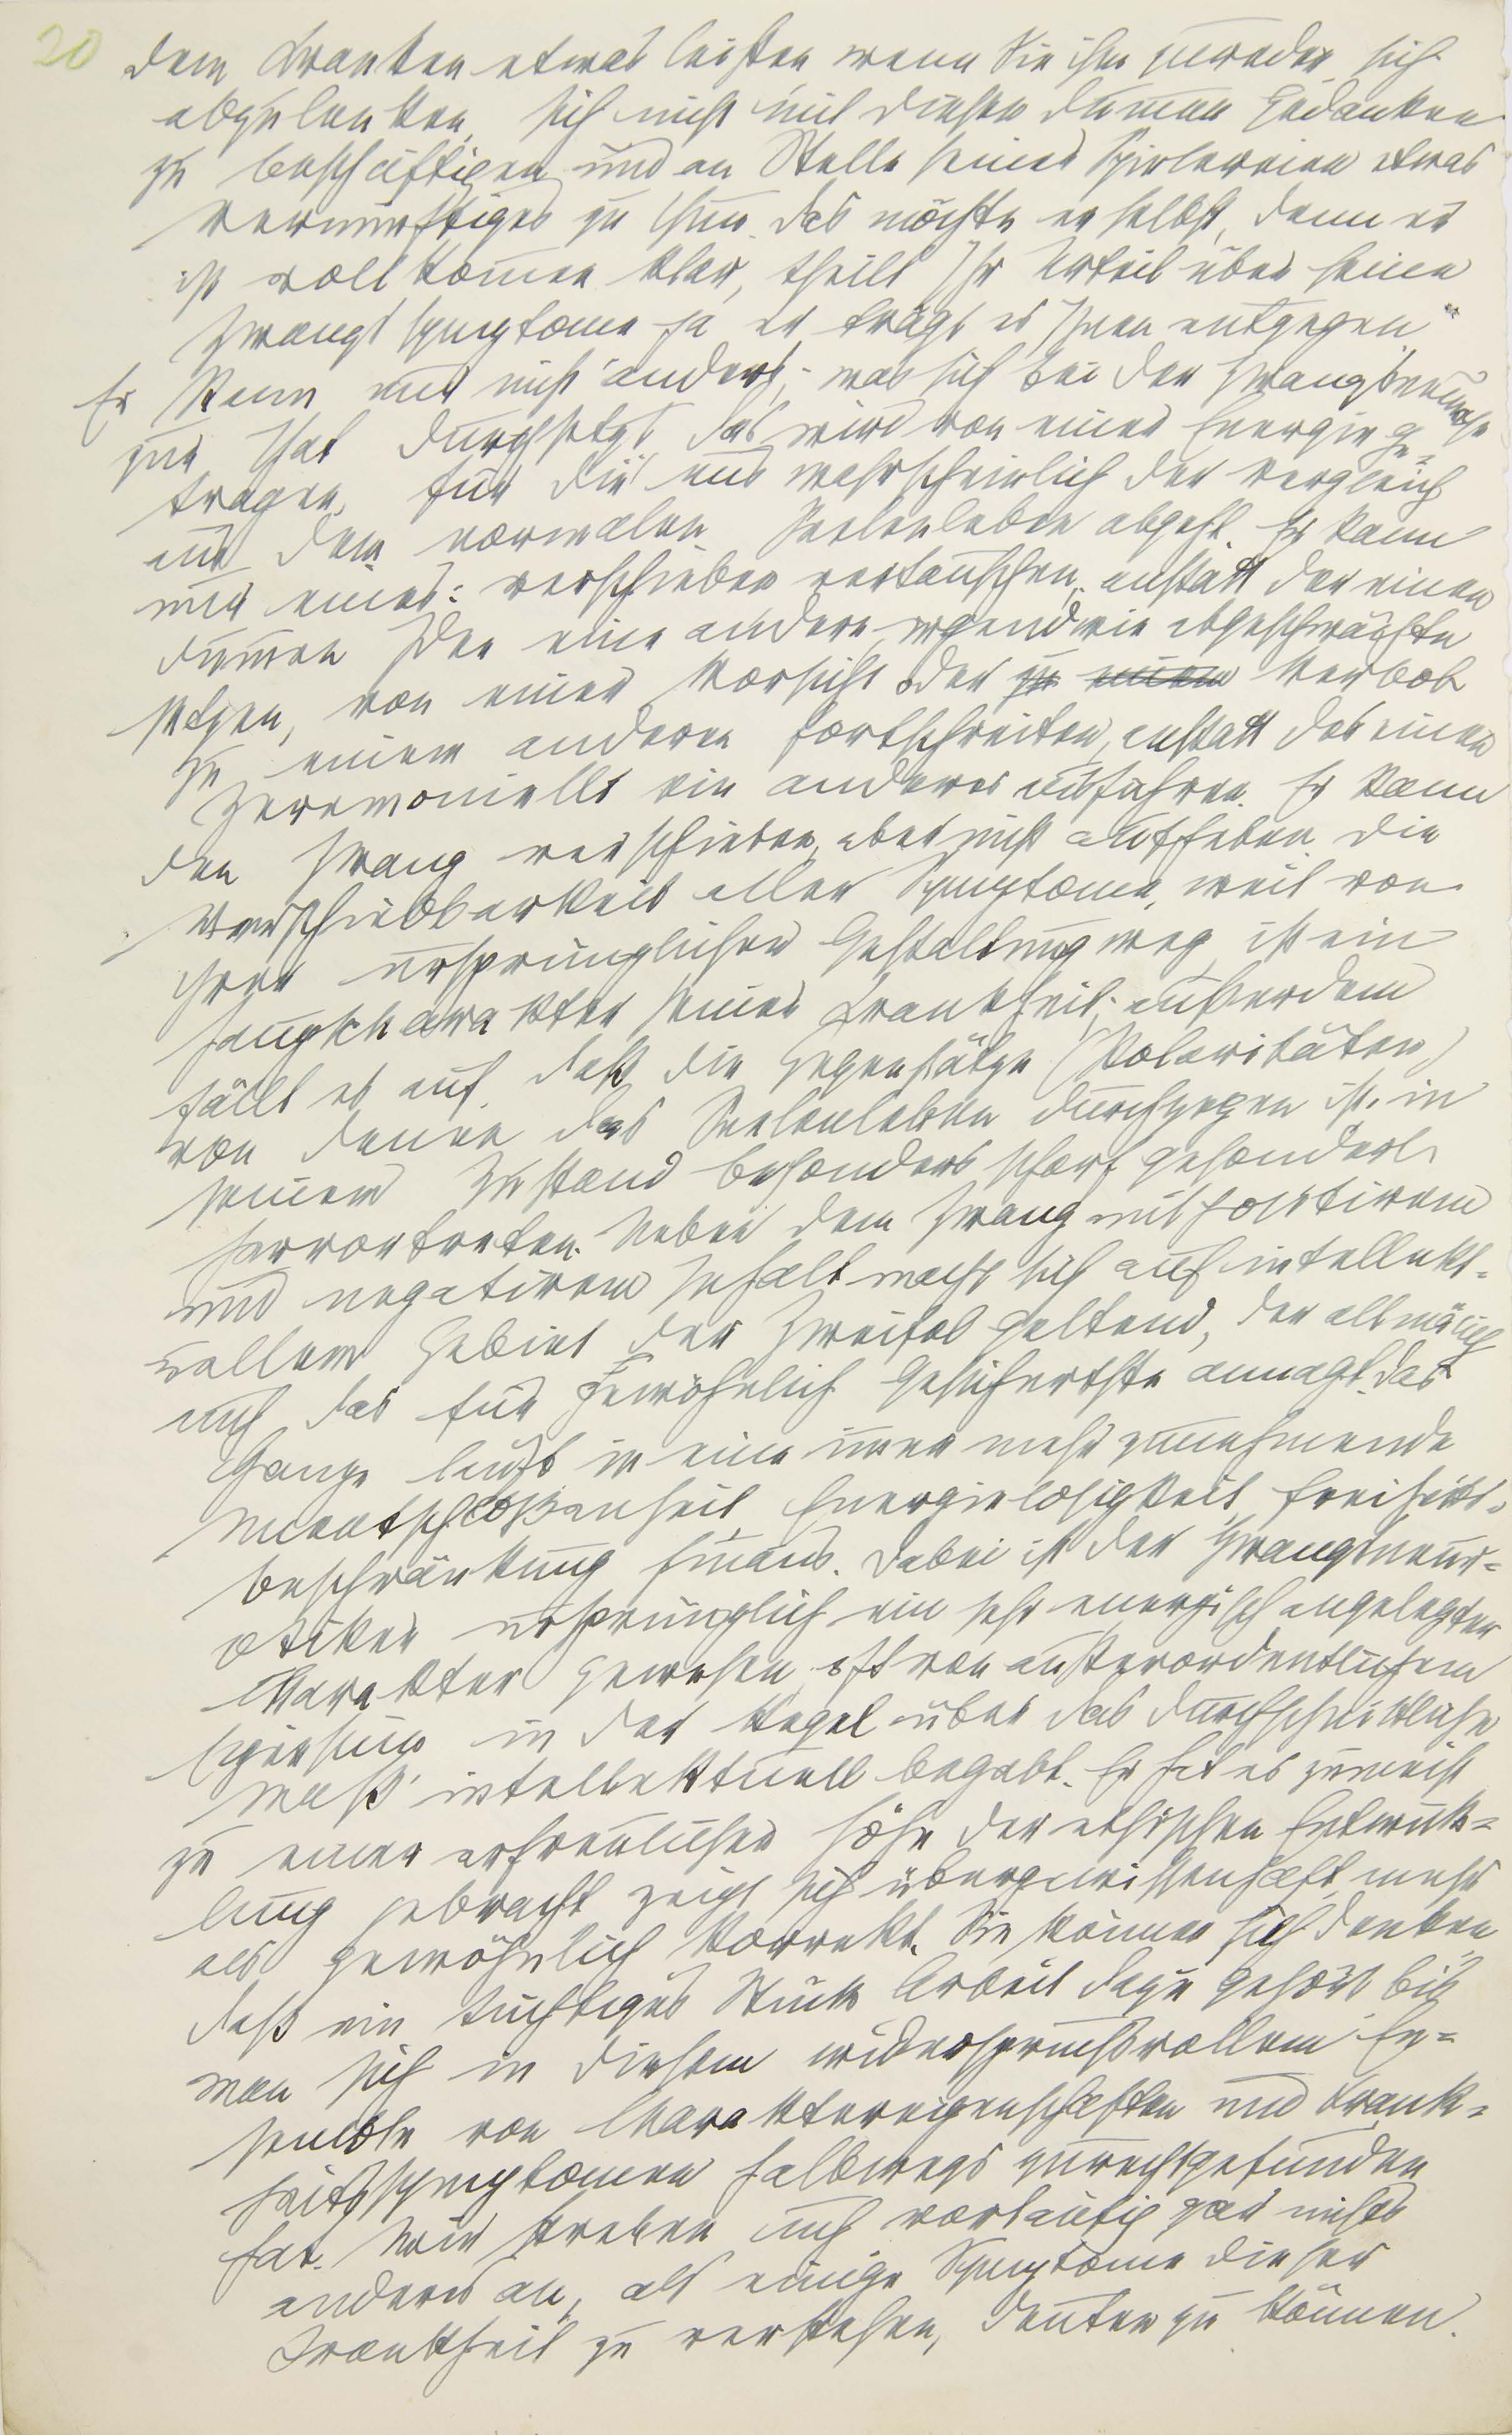 20
dem Kranken etwas leisten wenn Sie ihm zureden sich
abzulenken, sich nicht mit diesen dummen Gedanken
zu beschäftigen und an Stelle seiner Spielereien etwas
vernünftiges zu thun. das möchte er selbst, denn er
ist vollkommen klar, theilt Ihr Urteil über seine
Zwangssymptome ja er trägt es Ihnen entgegen.
Er kann nur nicht anders; was sich bei der Zwangsneurose
zur That durchsetzt, das wird von einer Energie ge-
tragen, für die uns wahrscheinlich der Vergleich
aus dem normalen Seelenleben abgeht. Er kann
nur eines: verschieben vertauschen, anstatt der einen
dummen Idee eine andere irgendwie abgeschwächte
setzen, von einer Vorsicht oder zu einem Verbot
zu einem anderen fortschreiten, anstatt des einen
Zeremoniells ein anderes ausführen. Er kann
den Zwang verschieben, aber nicht aufheben. Die
Verschiebbarkeit aller Symptome, weit von
ihrer ursprünglichen Gestaltung weg, ist ein
Hauptcharakter seiner Krankheit; außerdem
fällt es auf, daß die Gegensätze (Polaritäten)
von denen das Seelenleben durchzogen ist, in
seinem Zustand besonders scharf gesondert
hervortreten. Neben dem Zwang mit positivem
und negativem Inhalt macht sich auf intellekt-
uellem Gebiet der Zweifel geltend, der allmälich
auch das für Gewöhnlich Gesichertste annagt. das
Ganze läuft in eine immer mehr zunehmende
Unentschloßenheit, Energielosigkeit, Freiheits-
beschränkung hinaus. Dabei ist der Zwangsneur-
otiker ursprünglich ein sehr energisch angelegter
Charakter gewesen, oft von außerordentlichem
Eigensinn, in der Regel über das durchschnittliche
Maß intellektuell begabt. Er hat es zumeist
zu einer erfreulichen Höhe der ethischen Entwick-
lung gebracht zeigt sich übergewissenhaft, mehr
als gewöhnlich korrekt. Sie können sich denken
daß ein tüchtiges Stück Arbeit dazu gehört bis
man sich in diesem widerspruchsvollem En-
semble von Charaktereigenschaften und Krank-
heitssymptomen halbwegs zurechtgefunden
hat. Wir streben auch vorläufig gar nichts
anderes an, als einige Symptome dieser
Krankheit zu verstehen, deuten zu können.